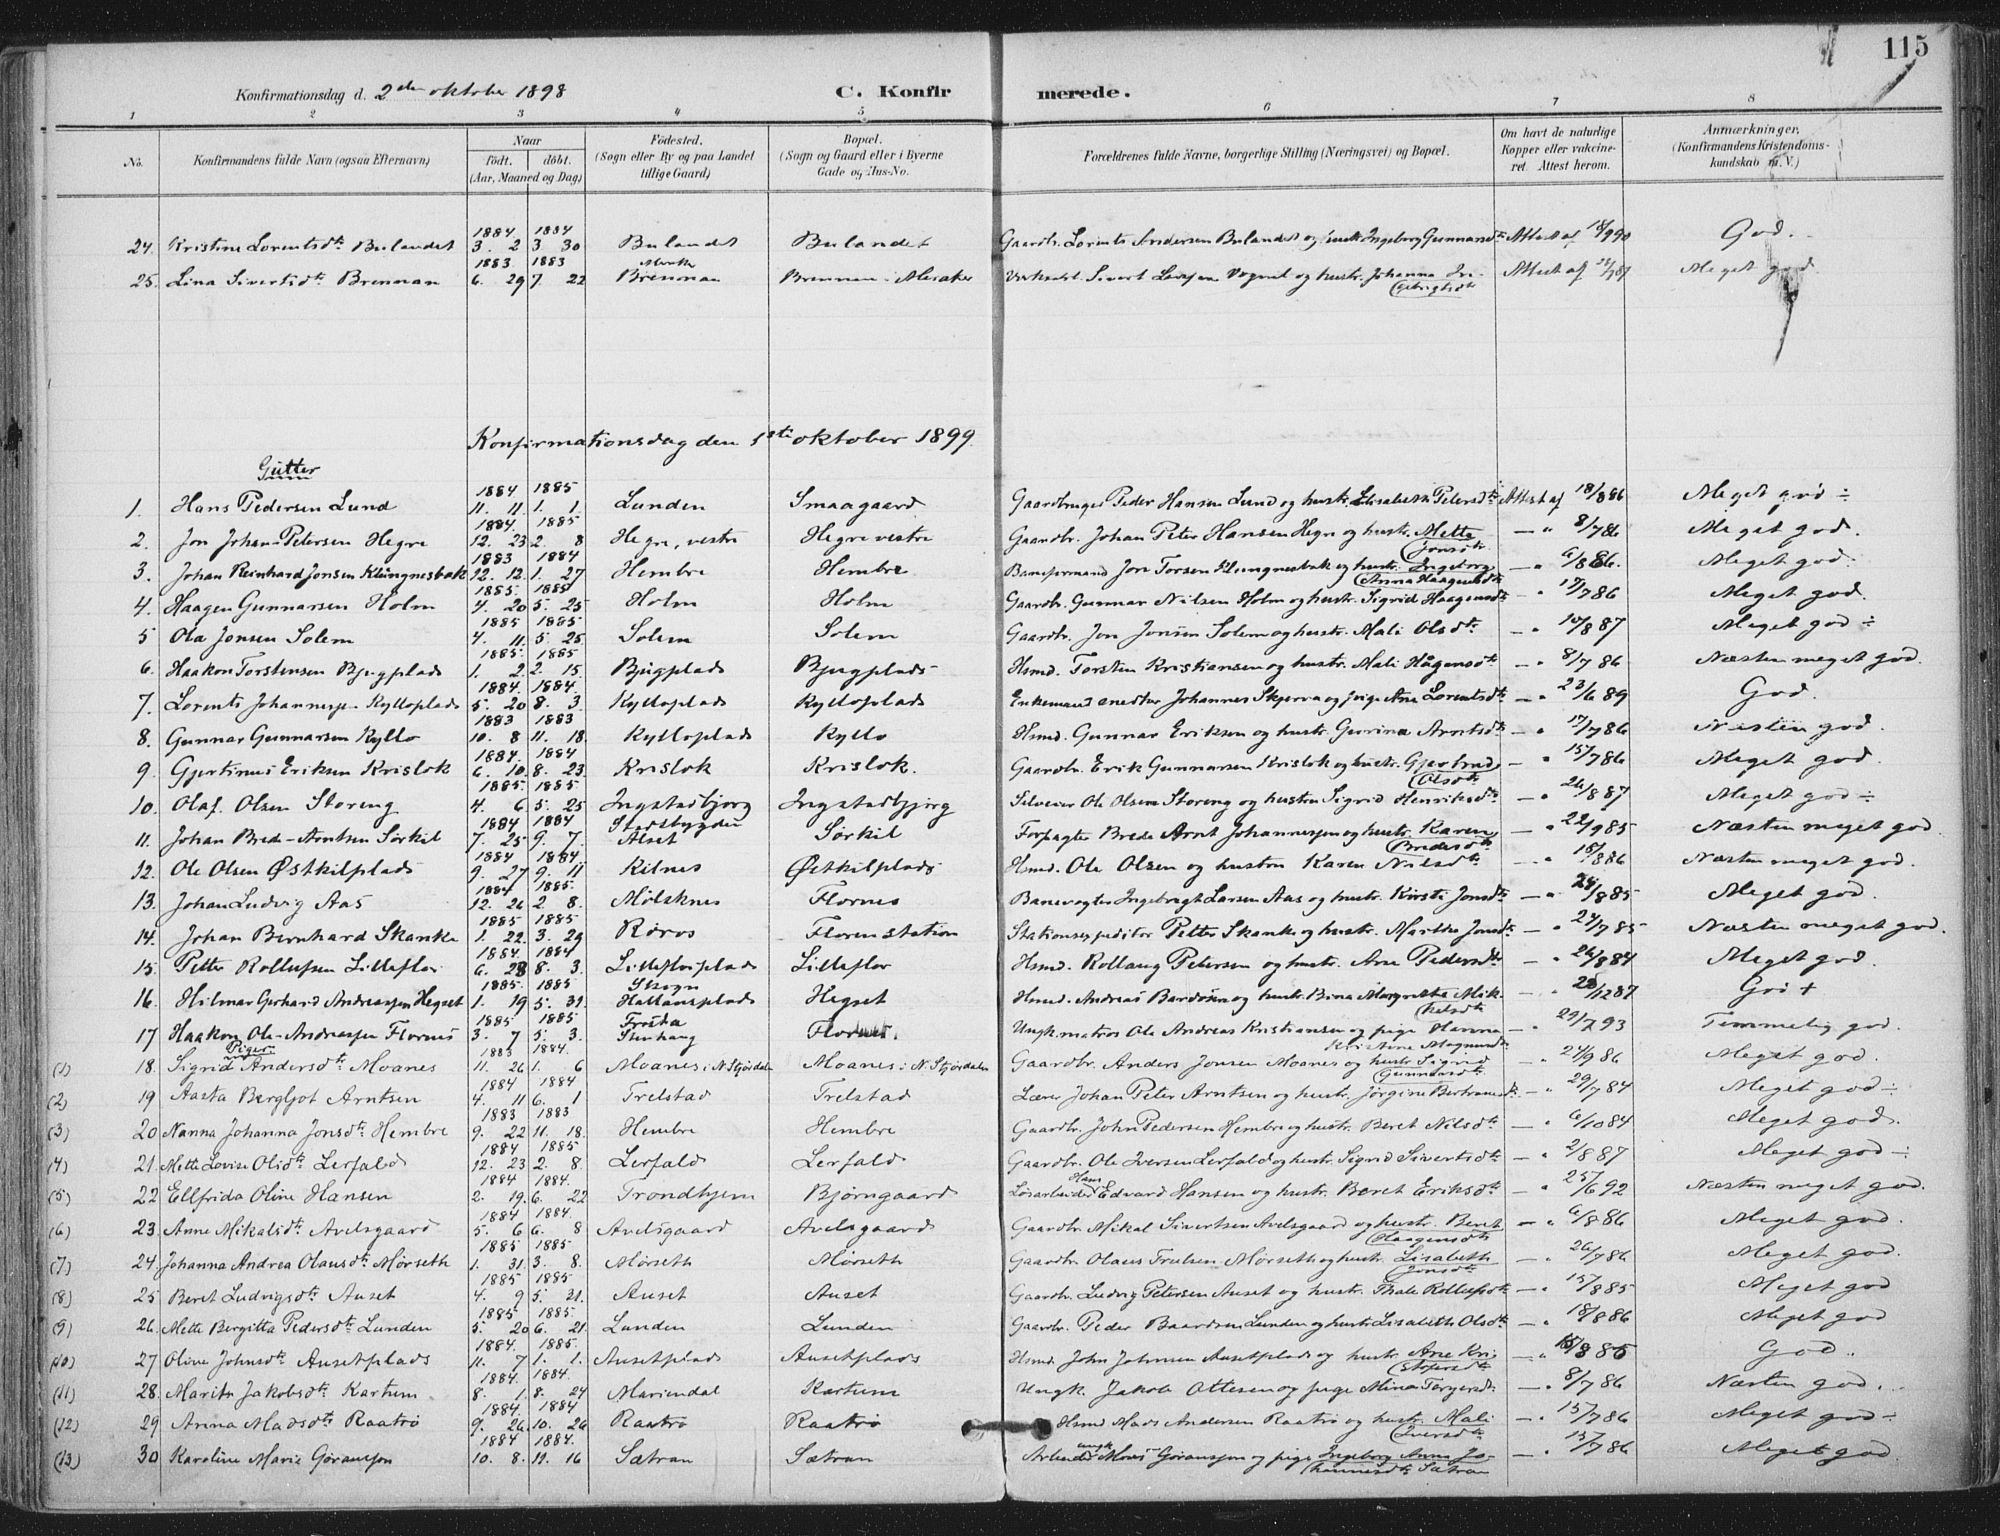 115
Konfirmationsdag d. 2den oktober 1898 C. Konfirmerede.
1 2 3 4 5 6 7 8
No. Konfirmandens fulde Navn (ogsaa Efternavn) Naar født. døbt. (Aar, Maaned og Dag) Fødested. (Sogn eller By og paa Landet tillige Gaard) Bopæl. (Sogn og Gaard eller i Byerne Gade og Hus-No. Forældrenes fulde Navne, borgerlige Stilling (Næringsvei) og Bopæl. Om havt de naturlige Kopper eller vakcineret. Attest herom. Anmærkninger, (Konfirmandens Kristendomskundskab m. V.)
24. Kristine Lorentsdtr Bulandet 1884 3. 2 1884 3 30 Bulandet Bulandet Gaardbr. Lorents Andersen Bulandet og hustr. Ingeborg Gunnarsdtr Attest af 18/9 90 God.
25. Lina Sivertsdtr Brennan 1883 6. 29 1883 7. 22 Brennan Brennan Meraker Sivert Larsen Vognild og hustr. Johanna Ingebrigtsdtr Attest af Meget god
Konfirmationsdag den 1ste oktober 1899.
Gutter
1. Hans Pedersen Lund 1884 11. 11 1885 1. 1. Lunden Smaagaard Gaardbruger Peder Hansen Lund og hustr. Lisabeth Petersdtr Attest af 18/8 86 Meget god ÷
2. Jon Johan Petersen Hegre 1884. 12. 23 1885 2. 8 Hegre, vestre Hegre vestre Gaardbr. Johan Peter Hansen Hegre og hustr. Mette Jonsdtr — " 8/7 86 Meget god.
3. Johan Reinhard Jonsen Klungnesbak 1883 12. 12. 1884 1. 27 Hembre Hembre Baneformand Jon Torsen Klungnesbak og hustr. Ingeborg Anna Haagensdtr — " 6/8 86. Meget god.
4. Haagen Gunnarsen Holm 1885. 4. 20 1885 5. 25 Holm Holm Gaardbr. Gunnar Nilsen Holm og hustr. Sigrid Haagensdtr — " 17/7 86 Meget god.
5 Ola Jonsen Solem 1885 4. 11. 1885 5. 25 Solem Solem Gaardbr. Jon Jonsen Solem og hustr. Mali Olsdtr — " 10/8 87 Meget god ÷
6. Haakon Torstensen Bjugplads 1885. 1. 2. 1885. 2. 15. Bjugplads Bjugplads Hsmd. Torsten Kristiansen og hustr. Mali Hågensdtr — " 8/7 86 Næsten meget god.
7. Lorents Johannessen Kylloplads 1884. 5. 20 1884. 8. 3. Kylloplads Kylloplads Enkemand Johannes Skjerva og pige Ane Lorentsdtr — " 23/6 89 God.
8. Gunnar Gunnarsen Kyllo 1883 10. 8 1883 11. 18. Kylloplads Kyllo Hsmd. Gunnar Eriksen og hustr. Gurina Arntsdtr — " 17/7 86 Næsten god.
9. Gjertinus Eriksen Krislok 1884. 6. 10. 1884 8. 23. Krislok Krislok. Gaardbr. Erik Gunnarsen Krislok og hustr. Gjertrud Olsdtr — " 15/7 86 Meget god.
10. Olaf. Olsen Storeng 1885. 4. 6 1885. 5. 25 Ingstadbjørg Ingstadbjørg Selveier Ole Olsen Storeng og hustru Sigrid Henriksdtr — " 26/8 87 Meget god ÷
11. Johan Brede Arntsen Sørkil 1884 7. 25 1884 9. 7. Stadsbygden Alset Sørkil Forpagter Brede Arnt Johannessen og hustr. Karen Bredesdtr — " 22/9 85 Næsten meget god.
12. Ole Olsen Østkilplads 1884 9. 27 1884. 9. 11 Kilnes Østkilplads Hsmd. Ole Olsen og hustru Karen Nilsdtr — " 15/8 86 Næsten meget god.
13. Johan Ludvig Aas 1884 12. 26 1885. 2 8. Mølsknes Flornes Banevogter Ingebrigt Larsen Aas og hustr. Kirsti Jonsdtr — " 24/8 85 Meget god.
14. Johan Bernhard Skanke 1885 1. 22. 1885 3. 29 Røros Floren station Stationsexpeditør Petter Skanke og hustr. Martha Jonsdtr — " 24/7 85 Næsten meget god.
15. Petter Rollufsen Lilleflor 1884. 6. 28 1884 8. 3. Lilleflorplads Lilleflor Hsmd. Rollaug Petersen og hustr. Ane Pedersdtr — " 26/8 84 Meget god.
16. Hilmar Gerhard Andreassen Hegset 1885. 1. 19 1885 5. 31. Skogn Hallansplads Hegset Hsmd. Andreas Bardosen og hustr. Bina Margrethe Mikkelsdtr — " 28/12 87 God +
17 Haakon Ole Andreassen Flornes 1885 3. 7 1885. 5. 3. Frosta Stenhaug Flornes. Ungk. matros Ole Andreas Kristiansen og pige Hanna Kristine Magnusdtr — " 29/7 93 Temmelig god.
Piger
(1) 18. Sigrid Andersdtr Moanes 1883 11. 26 1884. 1. 6 Moanes i N. Stjørdalen Moanes i N. Stjørdalen Gaardbr. Anders Jonsen Moanes og hustr. Sigrid Gunnarsdtr — " 24/9 86 Meget god.
(2) 19 Aasta Bergljot Arntsen 1884 4. 11 1884 6. 1 Trelstad Trelstad Lærer Johan Peter Arntsen og hustr. Jørgine Bertramsdtr — " 29/7 84 Meget god ÷
(3) 20 Nanna Johanna Jonsdtr Hembre 1883 9. 22 1883 11. 18. Hembre Hembre Gaardbr. John Pedersen Hembre og hustr. Beret Nilsdtr — " 6/10 84 Meget god.
(4) 21. Mette Lovise Olsdtr Lerfald 1884 12. 23 1885 2. 8. Lerfald Lerfald Gaardbr. Ole Iversen Lerfald og hustr. Sigrid Sivertsdtr — " 2/8 87 Meget god ÷
(5) 22 Ellfrida Oline Hansen 1884 2. 19. 1884. 6. 22 Trondhjem Bjørngaard Løsarbeider Hans Edvard Hansen og hustr. Beret Eriksdtr — " 25/6 92 Næsten meget god.
(6) 23. Anne Mikalsdtr Avelsgaard 1884 5. 6 1884. 6. 8 Avelsgaard Avelsgaard Gaardbr. Mikal Sivertsen Avelsgaard og hustr. Beret Haagensdtr — " 6/8 86 Meget god.
(7) 24. Johanna Andrea Olausdtr Mørseth 1885 1. 31. 1885 3. 8. Mørseth Mørseth Gaardbr. Olaus Trulsen Mørseth og hustr. Lisabeth Jonsdtr — " 26/7 86 Meget god.
(8) 25 Beret Ludvigsdtr Auset 1885 4. 9 1885 5. 21. Auset Auset Gaardbr. Ludvig Petersen Auset og hustr. Thale Rollufsdtr — " 15/8 85 Meget god
(9) 26. Mette Bergitta Pedersdtr Lunden 1885 5. 20 1885. 6. 21. Lunden Lunden Gaardbr. Peder Baardsen Lunden og hustr. Lisabeth Olsdtr — " 18/8 86 Meget god
(10) 27 Oline Johnsdtr Ausetplads 1884. 11. 7 1885. 1. 1. Ausetplads Ausetplads Hsmd John Johnsen Ausetplads og hustr. Ane Kristofersdtr — " 15/8 85 God.
(11) 28. Marith Jakobsdtr Kartum 1884. 8. 1. 1884. 8. 24 Mariendal Kartum Ungk. Jakob Ottesen og pige Mina Torgersdtr — " 8/7 86 Næsten god.
(12) 29 Anna Madsdtr Raatrø 1884. 9. 26 1884 10. 26 Raatrø Raatrø Hsmd Mads Andersen Raatrø og hustr. Mali Iversdtr — " 15/7 86 Meget god ÷
(13) 30 Karoline Marie Gøransson 1884 10. 8. 1884. 11. 16 Sætran Sætran Arbeider ungk Göransson og pige Ingeborg Anna Johannesdtr Sætran — " 15/7 86 Meget god